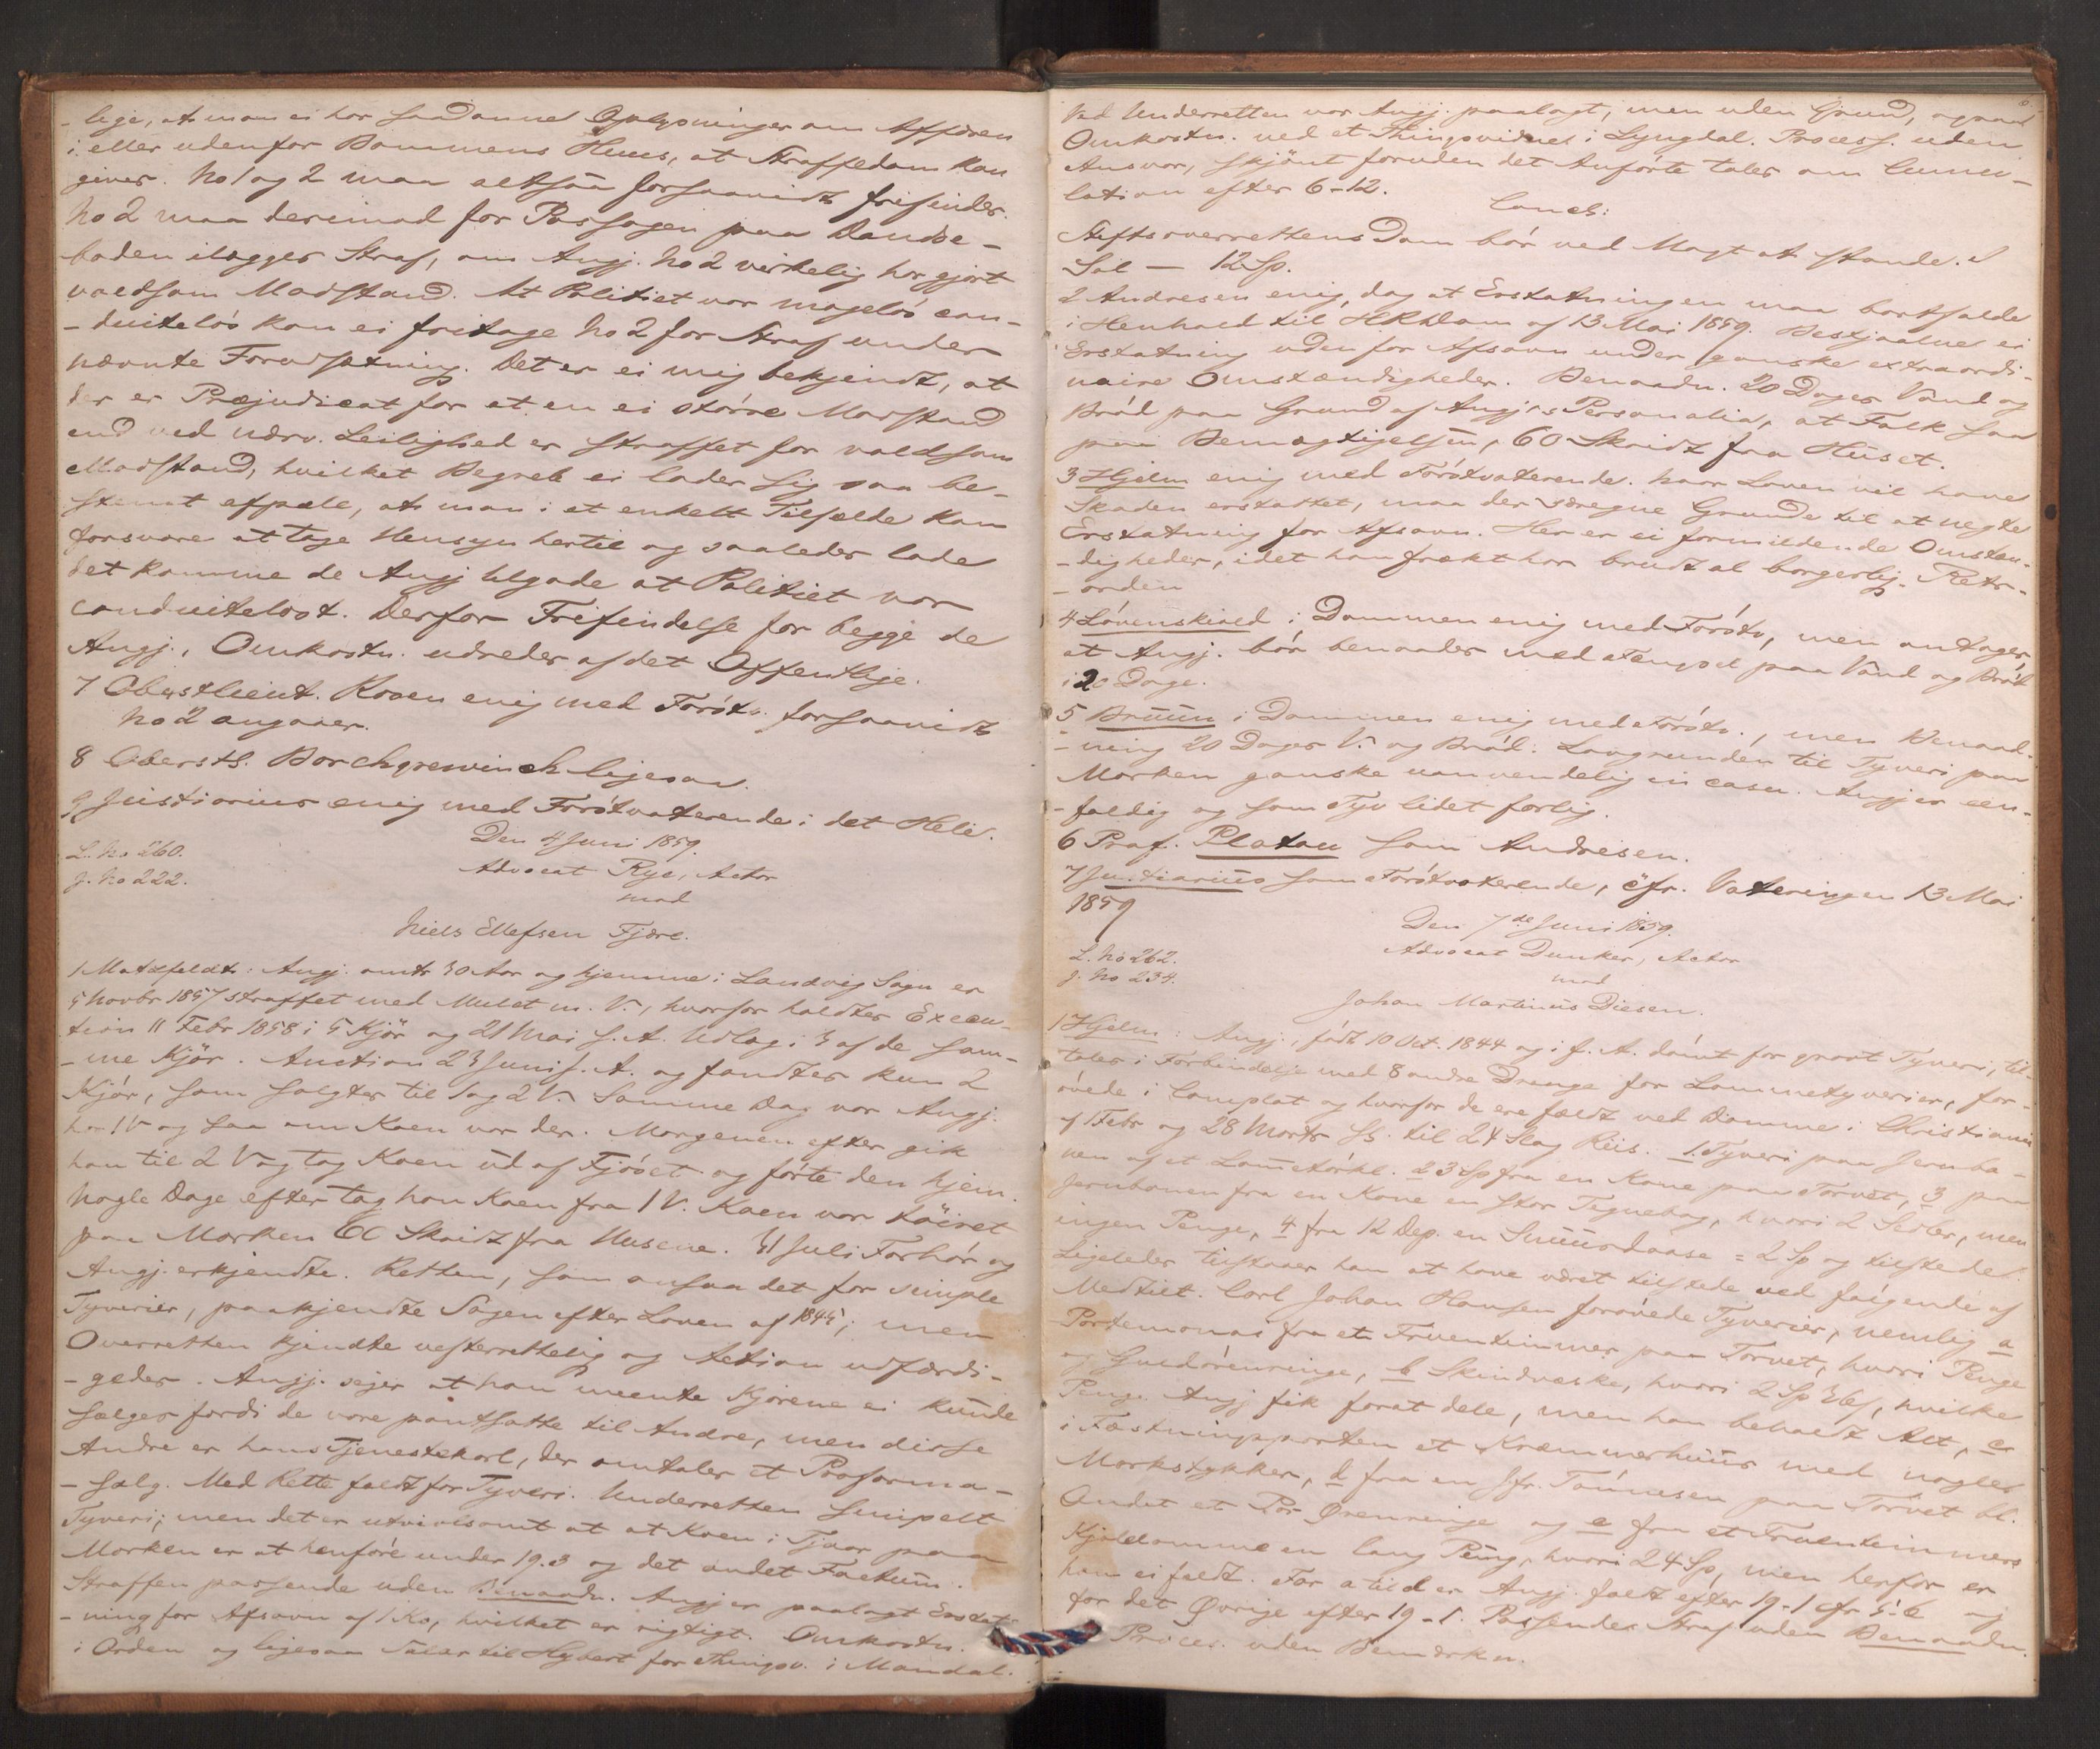 - lige, at man ei har saadanne Oplysninger om Affæren
i eller udenfor Bommens Huus, at Straffedom kan
gives. No 1 og 2 maa altsaa forsaavidt frifindes.
No 2 maa derimod for Passagen paa Landse-
boden ilægges Straf, om Angj. No 2 virkelig har gjort
voldsom Modstand. At Politiet var mageløs con-
- duiteløs kan ei fritage No 2 for Straf under
nævnte Forudsætning. Det er ei mig bekjendt, at
der er Præjudicat for at en ei større Modstand
end ved nærv. Leilighed er straffet for voldsom
Modstand, hvilket Begreb ei lader sig saa be-
stemt afpæle, at man i et enkelt Tilfælde kan
forsvare at tage Hensyn hertil og saaledes lade
det komme de Angj tilgode at Politiet var
conduiteløst. Derfor Frifindelse for begge de
Angj., Omkostn. udredes af det Offentlige.
7 Oberstlieut. Roaen enig med Førstv. forsaavidt
No 2 angaaer.
8 Oberstl. Borchgrevinck ligesaa.
9 Justiarius enig med Førstvoterende i det Hele.
Den 4 Juni 1859.
L. No 260.
J. No 222.
Advocat Rye, Actor
mod
Niels Ellefsen Fjære.
1 Motzfeldt: Angj. omtr 30 Aar og hjemme i Landvig Sogn er
5 Novbr 1857 straffet med Mulct m. V., hvorfor holdtes Execu-
tion 11 Febr 1858 i 5 Kjør og 21 Mai s. A. Udlæg i 3 af de sam-
- me Kjør. Auction 23 Juni s. A. og fandtes kun 2
Kjør, som solgtes til 1 og 2 V. Samme Dag var Angj.
hos 1 V og saa om Koen var der. Morgenen efter gik
han til 2 V og tog Koen ud af Fjøset og førte den hjem.
Nogle Dage efter tog han Koen fra 1 V. Koen var tøiret
paa Marken 60 Skridt fra Husene. 31 Juli Forhør og
Angj. erkjendte. Retten, som ansaa det for simple
Tyverier, paakjendte Sagen efter Loven af 1845; men
Overretten kjendte uefterrettelig og Action udfærdi-
- gedes. Angj. siger at han meente Kjørene ei kunde
sælges fordi de vare pantsatte til Andre, men disse
Andre er hans Tjenestekarl, der omtaler et Proforma-
- salg. Med Rette fældt for Tyveri. Underretten simpelt
Tyveri; men det er utvivlsomt at at Koen i Tjor paa
Marken er at henføre under 19.3 og det andet Factum.
Straffen passende uden Benaadn. Angj er paalagt Erstat-
- ning for Afsavn af 1 Ko, hvilket er rigtigt. Omkostn.
i Orden og ligesaa Salær til Hybert for Thingsv. i Mandal.
Ved Underretten var Angj. paalagt, men uden Grund, ogsaa
Omkostn. ved et Thingsvidne i Lyngdal. Process. uden
Ansvar, skjönt foruden det Anførte tales om Cumu-
lation efter 6-12.
Concl:
Stiftsoverrettens Dom bør ved Magt at stande. I
Sal - 12 Sp.
2 Andresen enig, dog at Erstatningen maa bortfalde
i Henhold til HRsDom af 13 Mai 1859. Bestjaalne ei
Erstatning uden for Afsavn under ganske extraordi-
naire Omstændigheder. Benaadn. 20 Dages Vand og
Brød paa Grund af Angj.s Personalia, at Folk saa
paa Bemægtigelsen, 60 Skridt fra Huset.
3 Hjelm enig med Førstvoterende. Naar Loven vil have
Skaden erstattet, maa der særegne Grunde til at negte
Erstatning for Afsavn. Her er ei formildende Omstæn-
- digheder, idet han frækt har brudt al borgerlig Rets-
- orden
4 Løvenskiold i Dommen enig med Førstv, men antager
at Angj. bør benaades med Fængsel paa Vand og Brød
i 20 Dage.
5 Bruun i Dommen enig med Førstv., men Benaad-
- ning 20 Dages V. og Brød. Lovgrunden til Tyveri paa
Marken ganske uanvendelig in casu. Angj er een-
- foldig og som Tyv lidet farlig.
6 Prof. Platou som Andresen.
7 Justiarius som Førstvoterende, cfr. Voteringen 13 Mai
1859
Den 7de Juni 1859.
L. No 262.
J. No 234.
Advocat Dunker, Actor
mod
Johan Martinus Diesen.
1 Hjelm: Angj., født 10 Oct. 1844 og i f. A. dømt for grovt Tyveri, til-
tales i Forbindelse med 8 andre Drenge for Lommetyverier, for-
øvede i Complot og hvorfor de ere fældt ved Domme i Christiania
af 1 Febr og 28 Marts ds. til 24 Slag Riis. 1 Tyveri paa Jernba-
nen af et Lometørkl. 2 3 Sp fra en Kone paa Torvet, 3 paa
Jernbanen fra en Kone en stor Tegnebog, hvori 2 Sedler, men
ingen Penge, 4 fra 12 Dep. en Snuusdaase = 2 Sp og tilstedet.
Ligeledes tilstaaer han at have været tilstede ved følgende af
Medtilt. Carl Johan Hansen forøvede Tyverier, nemlig a
Portemonai fra et Fruentimmer paa Torvet, hvori Penge
og Guldørenringe, b Skindvæske, hvori 2 Sp 36 s, hvilke
Peng. Angj fik forat dele, men han beholdt Alt, c
i Fæstningsporten et Kræmmerhuus med nogle
Markstykker, d fra en Jfr. Tønnesen paa Torvet bl.
Andet et Par Ørenringe og e fra et Fruentimmers
Kjolelomme en lang Pung, hvori 24 Sp, men herfor er
han ei fældt. For a til d er Angj. fældt efter 19-1 cfr 5-6 og
for det Øvrige efter 19-1. Passende Straf uden Benaadn.
Proces. uden Bemærkn.